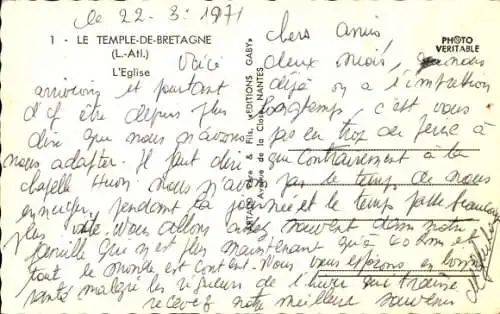 le 22-3-1971
1 - LE TEMPLE-DE-BRETAGNE
(L.-Atl.)
L'Eglise
PHOTO
VERITABLE
ARTAUD Père & Fils, «EDITIONS GABY»
Avenue de la Close, NANTES
chers amis
Voici deux mois, que nous
arrivons et pourtant déjà on a l'impression
d'y être depuis plus longtemps, c'est vous
dire que nous n'avons pas eu trop de peine à
nous adapter. Il faut dire que contrairement à la
chapelle Huon nous n'avons pas le temps de nous
ennuyer, pendant la journée et le temps passe beaucoup
plus vite. Nous allons assez souvent dans notre
famille qui n'est plus maintenant qu'à 20 kms et
tout le monde est content. Nous vous espérons en bonne
santé malgré les rigueurs de l'hiver qui traîne
recevez notre meilleur souvenir